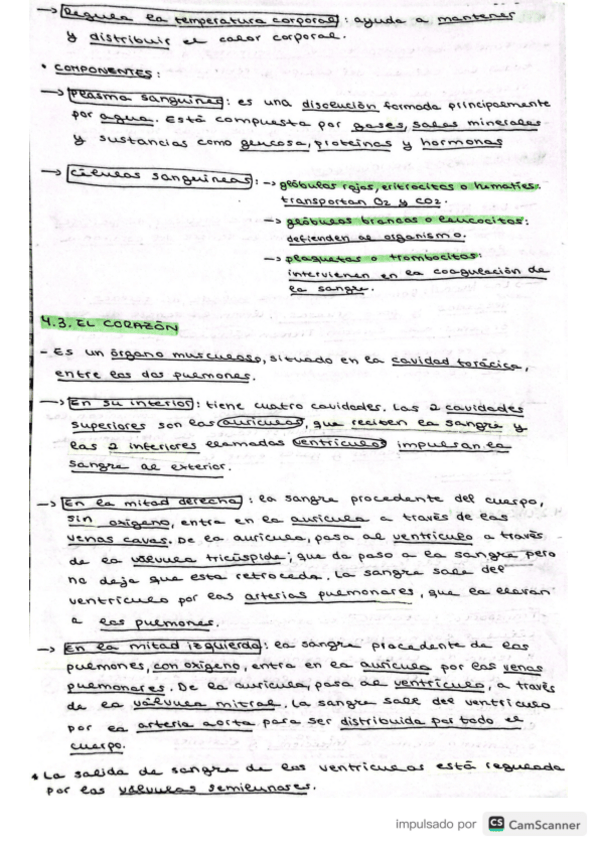 → Regula la temperatura corporal: ayuda a mantener
y distribuir el calor corporal.
• COMPONENTES:
→ Plasma sanguíneo: es una disolución formada principalmente
por agua. Está compuesta por gases, sales minerales
y sustancias como glucosa, proteínas y hormonas
→ Células sanguíneas: → glóbulos rojos, eritrocitos o hematíes:
transportan O2 y CO2.
→ glóbulos blancos o leucocitos:
defienden al organismo.
→ plaquetas o trombocitos:
intervienen en la coagulación de
la sangre.
4.3. EL CORAZÓN
- Es un órgano musculoso, situado en la cavidad torácica,
entre los dos pulmones.
→ En su interior: tiene cuatro cavidades. Las 2 cavidades
superiores son las aurículas, que reciben la sangre y
las 2 inferiores llamadas ventrículos impulsan la
sangre al exterior.
→ En la mitad derecha: la sangre procedente del cuerpo,
sin oxígeno, entra en la aurícula a través de las
venas cavas. De la aurícula, pasa al ventrículo a través
de la válvula tricúspide; que da paso a la sangre pero
no deja que esta retroceda. La sangre sale del
ventrículo por las arterias pulmonares, que la llevan
a los pulmones.
→ En la mitad izquierda: la sangre procedente de los
pulmones, con oxígeno, entra en la aurícula por las venas
pulmonares. De la aurícula, pasa al ventrículo, a través
de la válvula mitral. La sangre sale del ventrículo
por la arteria aorta para ser distribuida por todo el
cuerpo.
* La salida de sangre de los ventrículos está regulada
por las válvulas semilunares.
impulsado por CS CamScanner